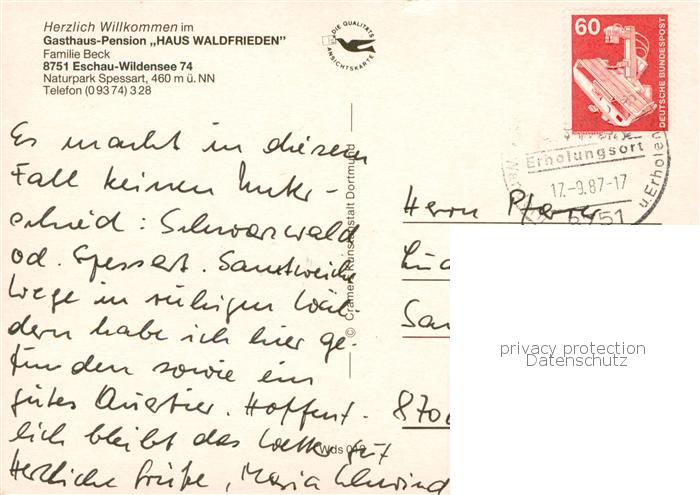 Herzlich Willkommen im
Gasthaus-Pension „HAUS WALDFRIEDEN"
Familie Beck
8751 Eschau-Wildensee 74
Naturpark Spessart, 460 m ü. NN
Telefon (0 93 74) 3 28
DIE QUALITÄTS
ANSICHTSKARTE
60
DEUTSCHE BUNDESPOST
Erholungsort
17.-9.87-17
u. Erholen
8751
Es macht in diesem
Fall keinen Unter-
schied: Schwarzwald
od. Spessart. Samtweiche
Wege in ruhigen Wäl-
dern habe ich hier ge-
funden sowie ein
gutes Quartier. Hoffent-
lich bleibt das Wetter gut
Herzliche Grüße, Maria
© Cramers Kunstanstalt Dortmund
Wds
Herrn Pfarrer
San
870
privacy protection
Datenschutz